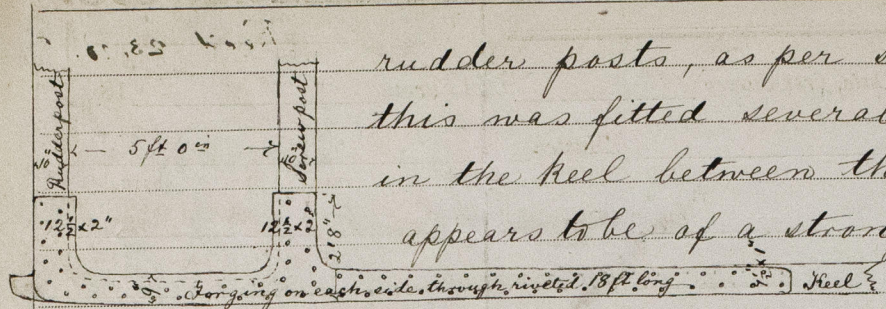 rudder posts, as per
this was fitted several
in the Keel between th
appears to be of a stron
Rudder post
Screw post
5 ft 0 in
10"
12½ x 2"
12½ x 2"
2'8"
Forging on each side through riveted 18 ft long
Keel